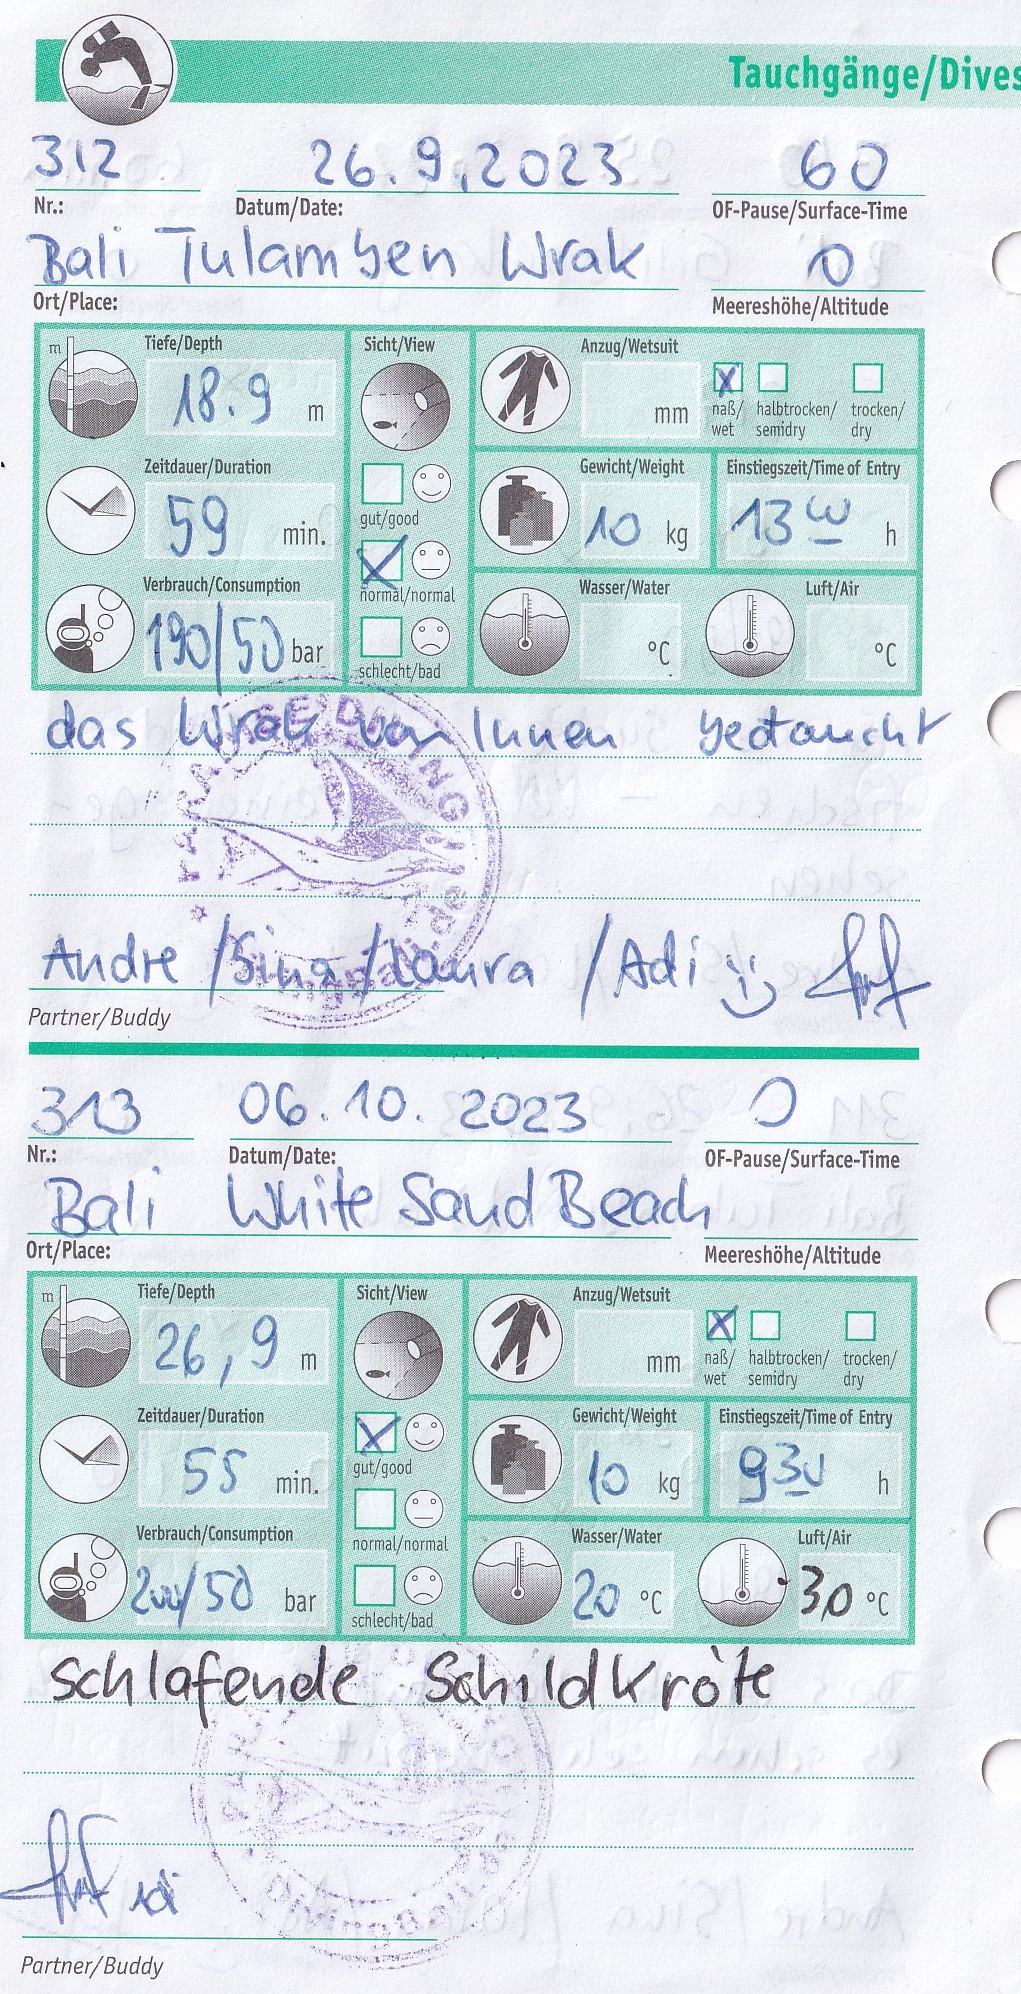 Tauchgänge/Dives
312 26.9.2023 60
Nr.: Datum/Date: OF-Pause/Surface-Time
Bali Tulamben Wrak 0
Ort/Place: Meereshöhe/Altitude
m Tiefe/Depth Sicht/View Anzug/Wetsuit
18.9 m mm naß/wet halbtrocken/semidry trocken/dry
Zeitdauer/Duration Gewicht/Weight Einstiegszeit/Time of Entry
59 min. gut/good 10 kg 13 00 h
Verbrauch/Consumption normal/normal Wasser/Water Luft/Air
190/50 bar schlecht/bad °C °C
das Wrak von Innen betaucht
Andre /Sina /Laura /Adi
Partner/Buddy
313 06.10.2023 0
Nr.: Datum/Date: OF-Pause/Surface-Time
Bali White Sand Beach
Ort/Place: Meereshöhe/Altitude
m Tiefe/Depth Sicht/View Anzug/Wetsuit
26,9 m mm naß/wet halbtrocken/semidry trocken/dry
Zeitdauer/Duration Gewicht/Weight Einstiegszeit/Time of Entry
55 min. gut/good 10 kg 9 30 h
Verbrauch/Consumption normal/normal Wasser/Water Luft/Air
200/50 bar schlecht/bad 20 °C 30 °C
schlafende Schildkröte
Adi
Partner/Buddy